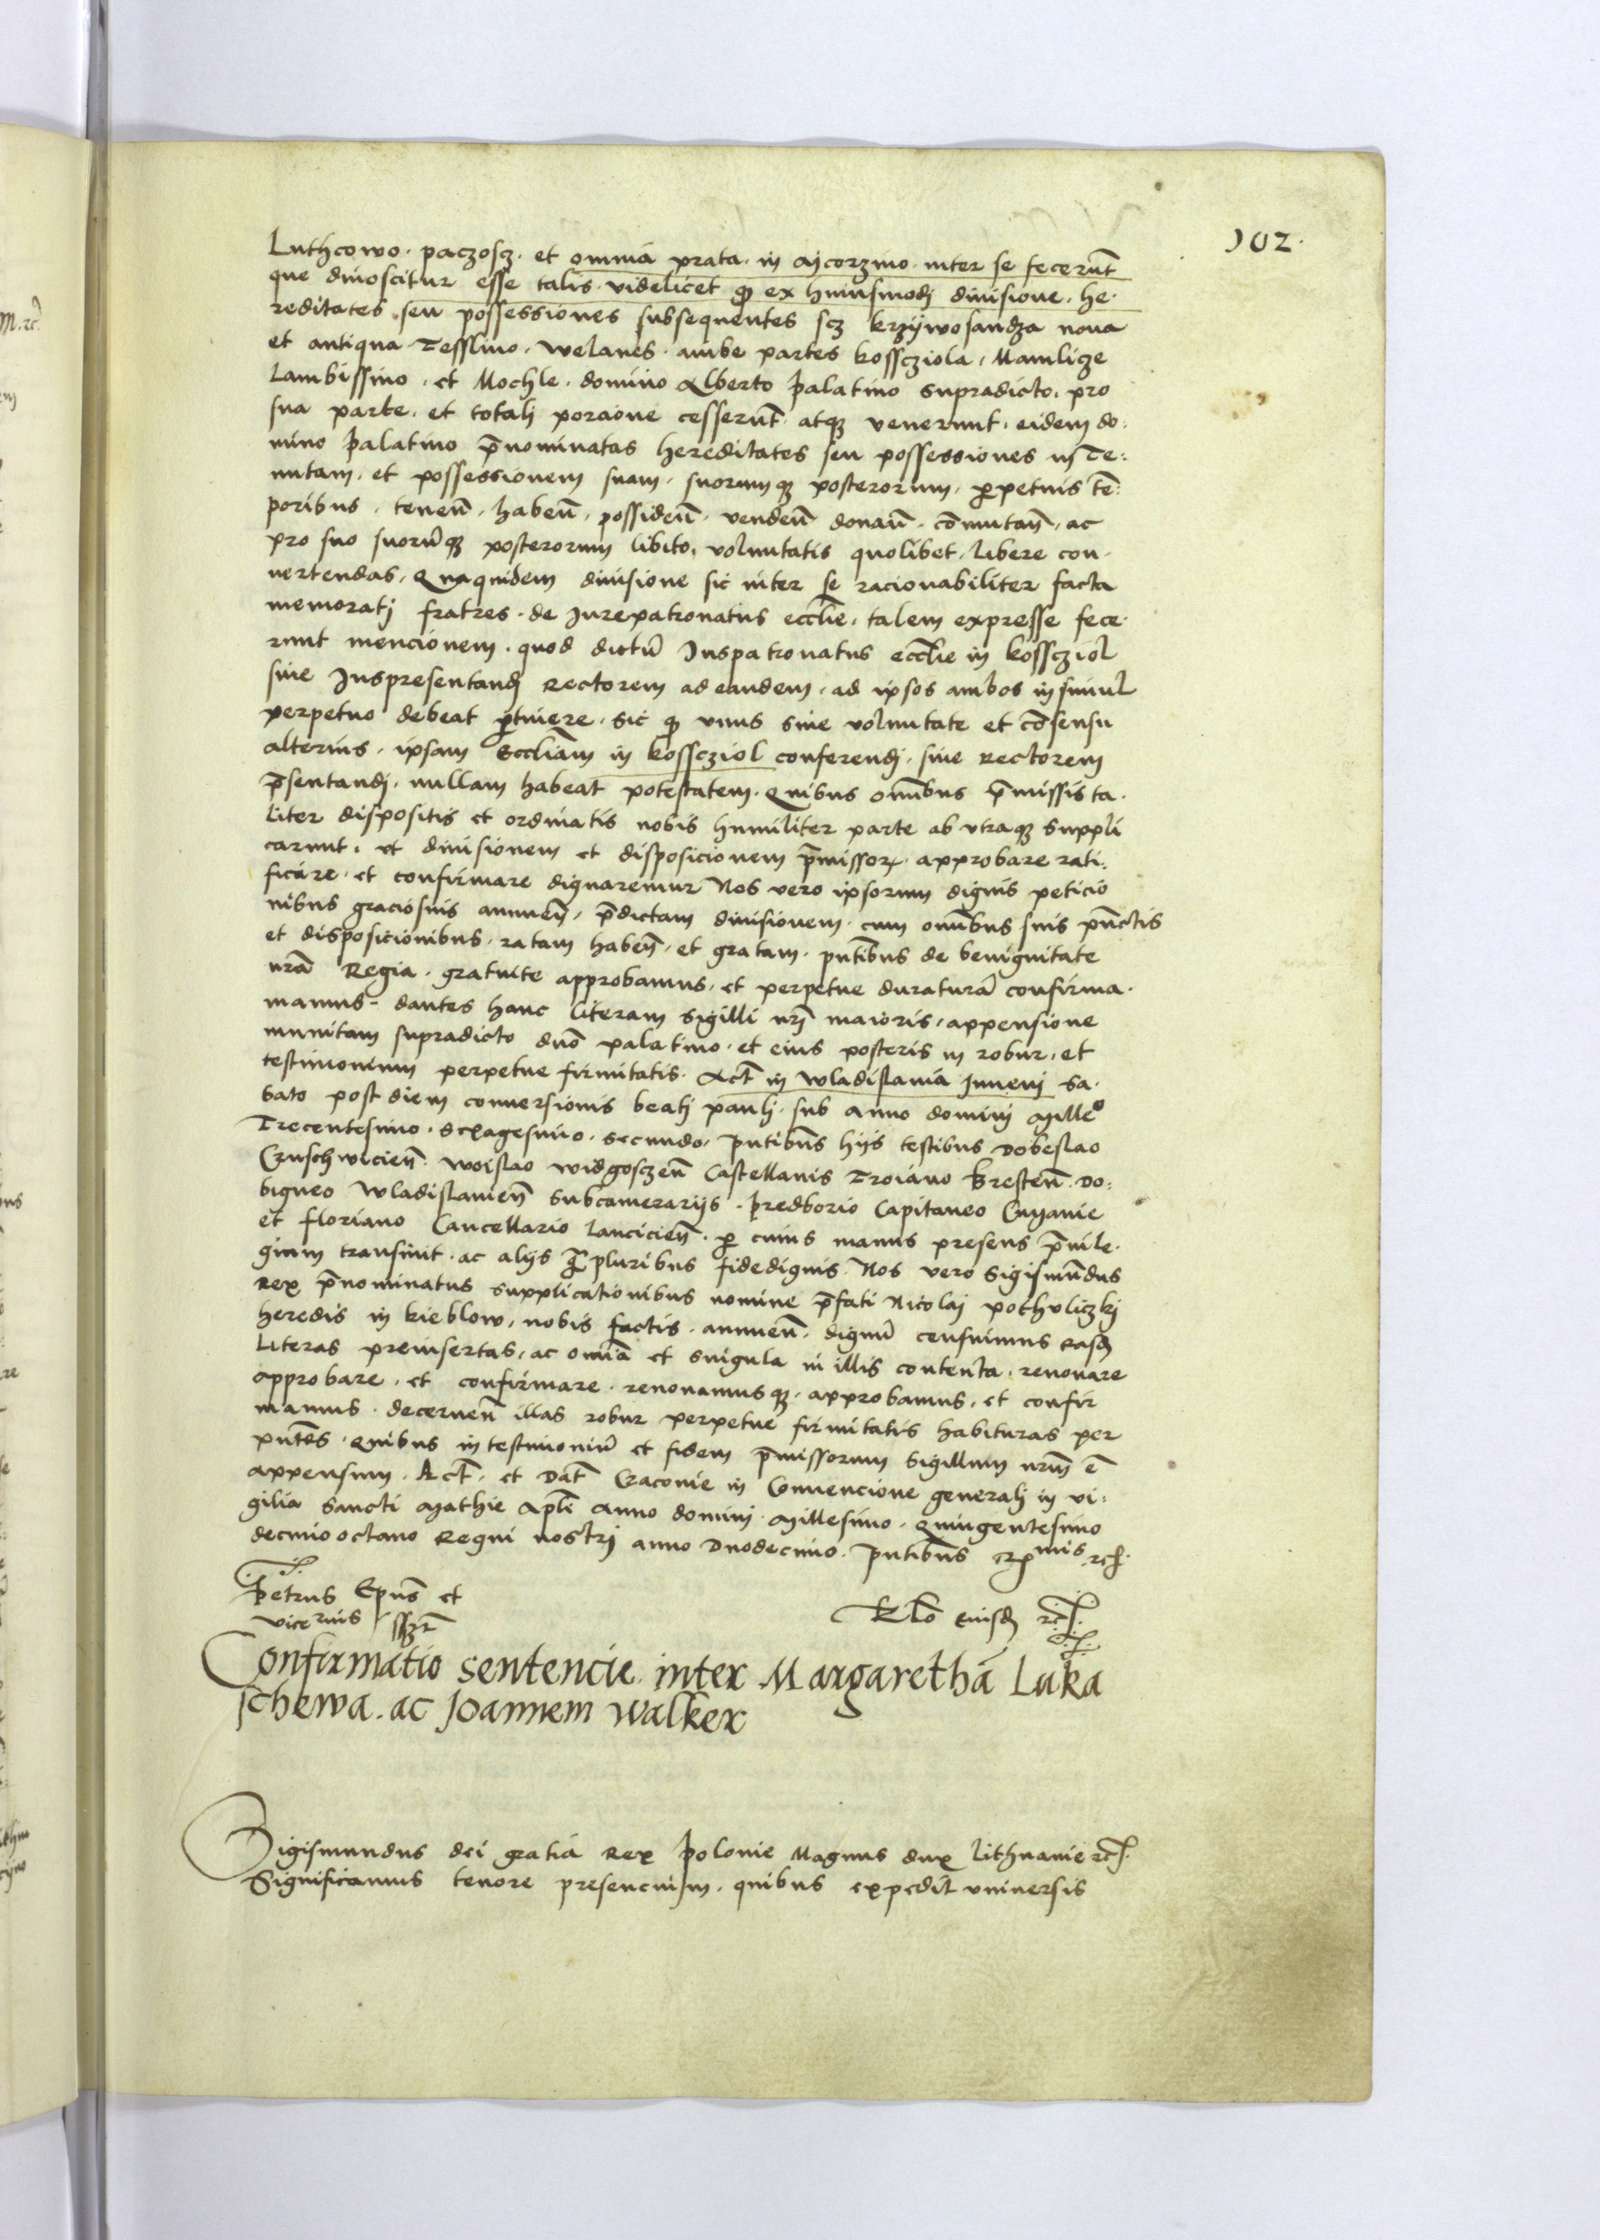 102.
Luthcowo. paczosz. et omnia prata. in Mcorzino. inter se fecerūt
que dinoscitur esse talis. videlicet q̄ ex huiusmodj diuisione. he.
reditates seu possessiones subsequentes scz krzywosandza noua
et antiqua. Tesslino. welanes. ambe partes kossciola. Mamlicze
Lambissino. et Mochle. domino Alberto palatino supradicto. pro
sua parte. et totalj porcione cesserūt. atqz venerunt. eidem do:
mino palatino p̄nominatas hereditates seu possessiones in Te:
nutam. et possessionem suam. suorumqz posterorum. ppetuis tē:
poribus. tenen̄. haben̄. possiden̄. venden̄ donan̄. cōmutan̄. ac
pro suo suorūqz posterorum libito. voluntatis quolibet. libere con.
uertendas. Quaquidem diuisione sic inter se racionabiliter facta
memoratj fratres. de Jurepatronatus eccl̄ie. talem expresse fece.
runt mencionem. quod dictū Juspatronatus eccl̄ie in kosscziol
siue Juspresentandj Rectorem ad eandem. ad ipsos ambos insimul
perpetuo debeat ptinere. sic q̄ vnus sine voluntate et cōsensu
alterius. ipsam Eccl̄iam in kosscziol conferendj. siue Rectorem
p̄sentandj. nullam habeat potestatem. Quibus om̄ibus p̄missis ta.
liter dispositis et ordinatis nobis humiliter parte ab vtraqz suppli
carunt. vt diuisionem et disposicionem p̄missoꝝ. approbare rati:
ficare. et confirmare dignaremur Nos vero ipsorum dignis peticio
nibus graciosius annuen̄. p̄dictam diuisionem. cum om̄ibus suis pūctis
et disposicionibus. ratam haben̄. et gratam. pn̄tibus de benignitate
nr̄a Regia. gratuite approbamus. et perpetue duraturā confirma.
mamus. dantes hanc literam sigilli nr̄j maioris. appensione
munitam supradicto dn̄o palatino. et eius posteris in robur. et
testimonium perpetue firmitatis. Act̄ in wladislauia Juuenj sa.
bato post diem conuersionis beatj paulj. sub anno dominj Mille°
Trecentesimo. sexagesimo. secundo. pn̄tibus hijs testibus Dobeslao
Cruschwicien̄. woislao widgosczen̄ Castellanis Troiano Bresten̄. Do:
bigneo wladislauien̄ subcamerarijs. predborio Capitaneo Cuyauie
et floriano Cancellario lancicien̄. p cuius manus presens p̄uile.
gium transiuit. ac alijs q̄pluribus fidedignis. Nos vero Sigismūdus
Rex p̄nominatus supplicationibus nomine p̄fati Nicolaj pothuliczkj
heredis in kieblow. nobis factis. annuen̄. dignū censuimus easd
Literas preinsertas. ac om̄ia et singula in illis contenta. renouare
approbare. et confirmare. renouamusqz. approbamus. et confir
mamus. decernen̄ illas robur perpetue firmitatis habituras per
pn̄tes. Quibus in testimoniū et fidem p̄missorum Sigillum nr̄m ē
appensum. Act̄. et Dat̄ Cracouie in Conuencione generalj in vi:
gilia sancti Mathie apl̄i Anno dominj Millesimo. Quingentesimo
decimooctauo Regni nostrj anno Duodecimo. pn̄tibus
Petrus Ep̄us et
vice
Rl̄o eiusd rc̄
Confirmatio sentencie inter Margarethā Luka
schewa. ac Joannem walker
Sigismundus dei gratia Rex Polonie Magnus dux lithuanie rc̄.
Significamus tenore presencium. quibus expedit vniuersis